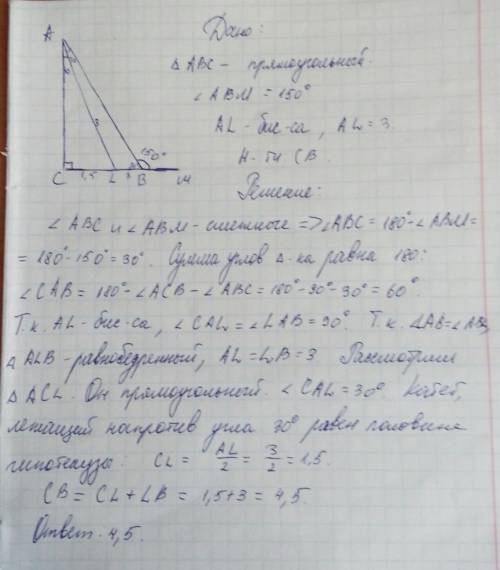 Дано:
A
△ABC - прямоугольный.
∠ABM = 150°
AL - бис-са, AL = 3.
Н-ти: CB
3
150°
C 1,5 L 3 B M
Решение:
∠ABC и ∠ABM - смежные => ∠ABC = 180° - ∠ABM =
= 180° - 150° = 30°. Сумма углов △-ка равна 180:
∠CAB = 180° - ∠ACB - ∠ABC = 180° - 90° - 30° = 60°
Т.к. AL - бис-са, ∠CAL = ∠LAB = 30°. Т.к.
△ALB - равнобедренный, AL = LB = 3 Рассмотрим
△ACL. Он прямоугольный. ∠CAL = 30°. Катет,
лежащий напротив угла 30° равен половине
гипотенузы: CL = AL/2 = 3/2 = 1,5.
CB = CL + LB = 1,5 + 3 = 4,5.
Ответ: 4,5.